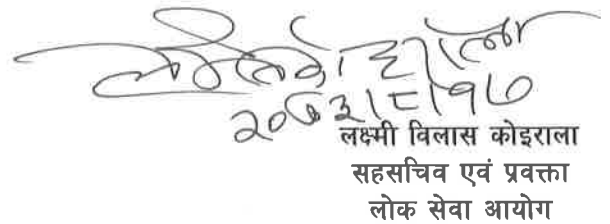 २०७३।८।१७
लक्ष्मी विलास कोइराला
सहसचिव एवं प्रवक्ता
लोक सेवा आयोग